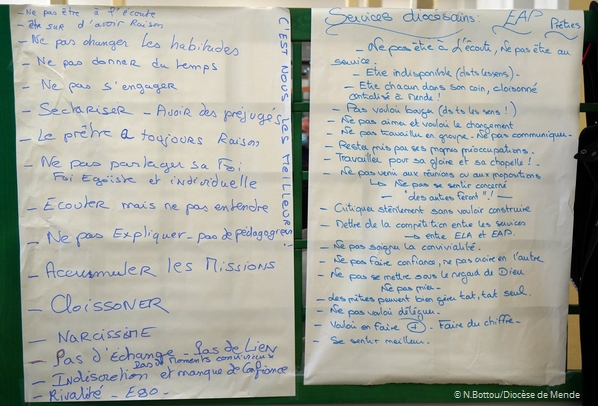 - Ne pas être à l'écoute
- être sur d'avoir Raison
- Ne pas changer les habitudes
- Ne pas donner du temps
- Ne pas s'engager
- Séctariser - Avoir des préjugés
- Le prêtre a toujours Raison
- Ne pas partager sa Foi
Foi Egoïste et individuelle
- Ecouter mais ne pas entendre
- Ne pas Expliquer - pas de pédagogies
- Accumuler les Missions
- Cloissoner
- Narcissime
- Pas d'échange - Pas de Lien
Pas de moments conviviaux
- Indiscretion et manque de Confiance
- Rivalité - Ego -
C'EST NOUS LES MEILLEURS!
Services diocésains: EAP Prêtres
- Ne pas être à l'écoute, Ne pas être au
service.
- Etre indisponible (ds ts les sens) -
- Etre chacun dans son coin, cloisonné
centralisé à Mende!
- Pas vouloir bouger (ds ts les sens!)
- Ne pas aimer et vouloir le changement
- Ne pas travailler en groupe - Ne pas communiquer -
- Rester pris par ses propres préoccupations.
- Travailler pour sa gloire et sa chapelle! -
- Ne pas venir aux réunions ou aux propositions
↳ Ne pas se sentir concerné
"des autres feront"! -
- Critiquer stérilement sans vouloir construire
- Mettre de la compétition entre les services
→ entre ELA et EAP.
- Ne pas soigner la convivialité.
- Ne pas faire confiance, ne pas croire en l'autre
- Ne pas se mettre sous le regard de Dieu
Ne pas prier -
- les prêtres peuvent bien gérer tout, tout seul.
- Ne pas vouloir déléguer.
- Vouloir en faire + - Faire du chiffre -
- Se sentir meilleur.
© N.Bottou/Diocèse de Mende